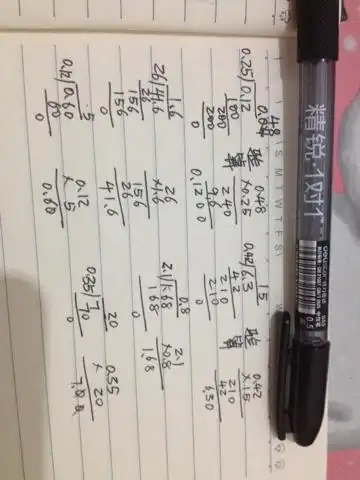 精锐·1对1
S M T W T F S
0.48
0.25)0.12
100
200
200
0
验算
0.48
×0.25
240
96
0.1200
15
0.42)6.3
42
210
210
0
验算
0.42
×15
210
42
6.30
1.6
26)41.6
26
156
156
0
26
×1.6
156
26
41.6
0.8
2.1)1.68
168
0
2.1
×0.8
1.68
5
0.12)0.60
60
0
0.12
× 5
0.60
20
0.35)7
70
0
0.35
× 20
7.00